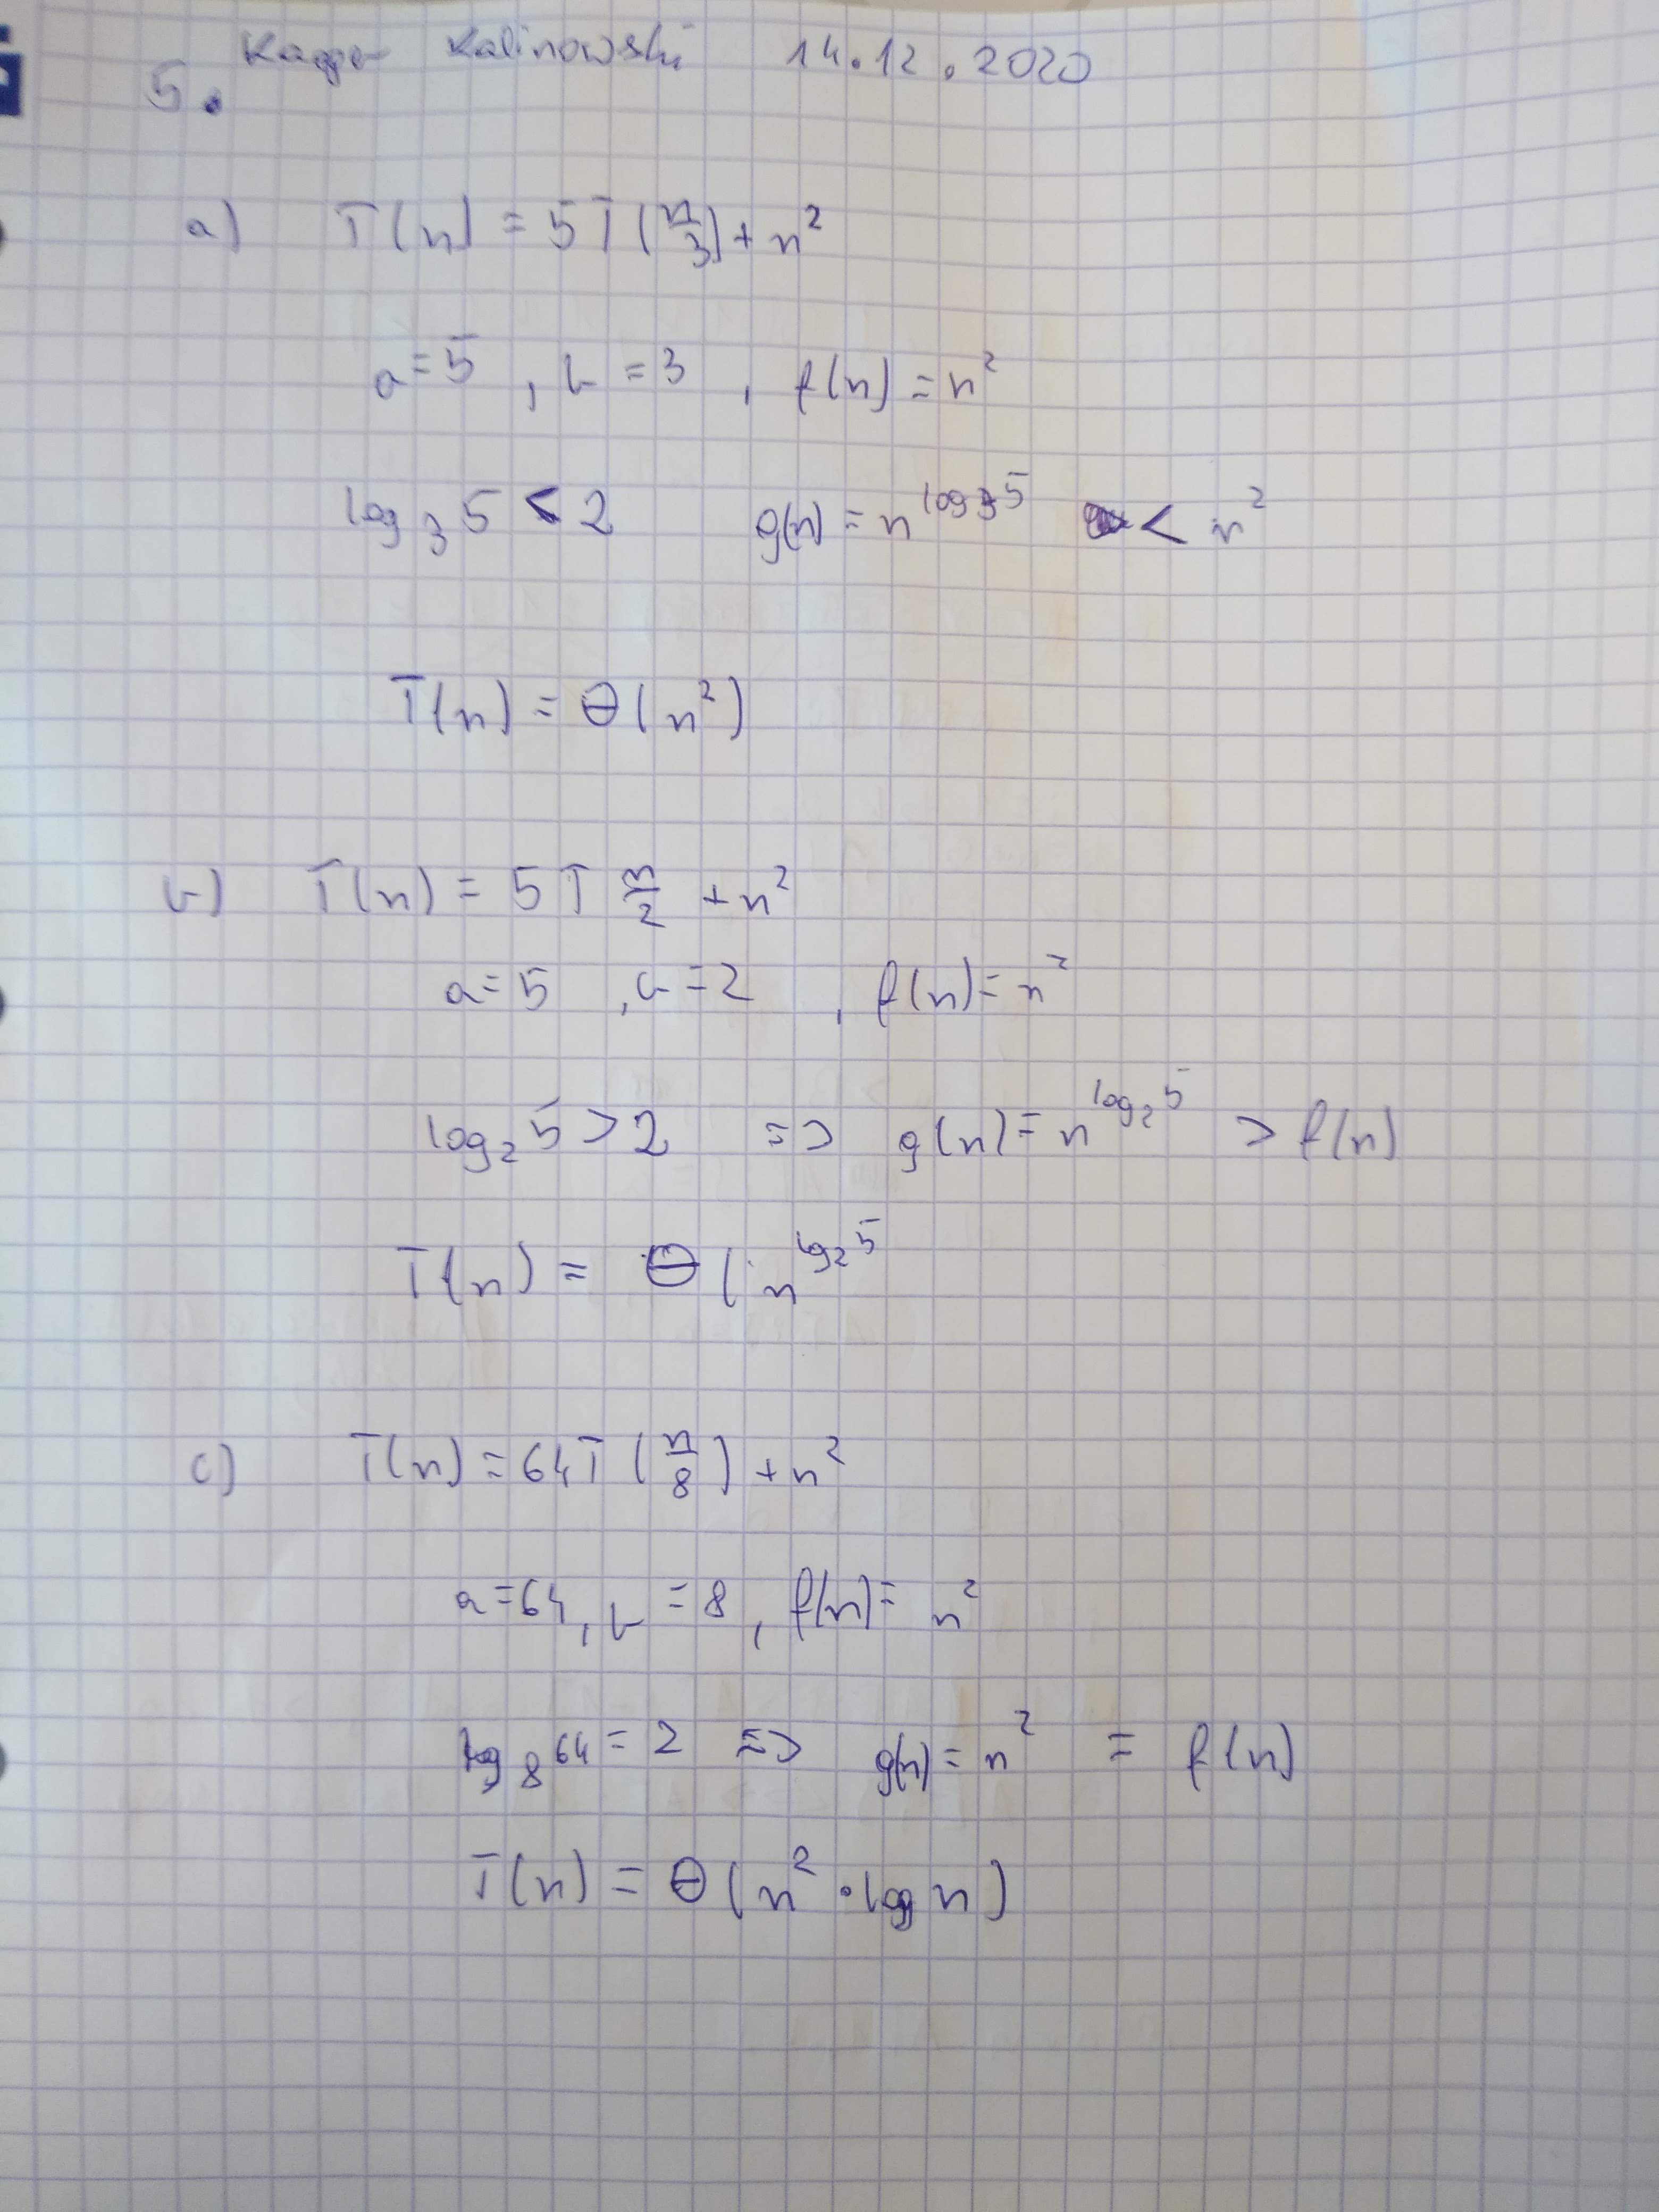 Kacper Kalinowski 14.12.2020
5.
a) T(n) = 5T(n/3) + n²
a = 5, b = 3, f(n) = n²
log₃ 5 < 2 g(n) = n^log₃5 < n²
T(n) = Θ(n²)
b) T(n) = 5T n/2 + n²
a = 5, b = 2, f(n) = n²
log₂ 5 > 2 => g(n) = n^log₂5 > f(n)
T(n) = Θ(n^log₂5
c) T(n) = 64T(n/8) + n²
a = 64, b = 8, f(n) = n²
log₈ 64 = 2 => g(n) = n² = f(n)
T(n) = Θ(n² · log n)